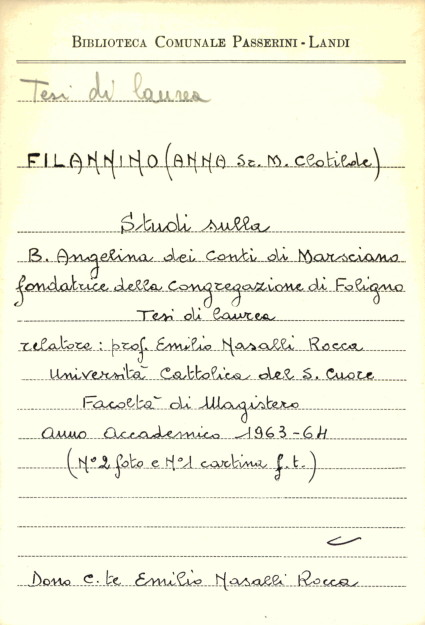 BIBLIOTECA COMUNALE PASSERINI - LANDI
Tesi di laurea
FILANNINO (ANNA Sr. M. Clotilde)
Studi sulla
B. Angelina dei Conti di Marsciano
fondatrice della Congregazione di Foligno
Tesi di laurea
relatore: prof. Emilio Nasalli Rocca
Università Cattolica del S. Cuore
Facoltà di Magistero
Anno Accademico 1963-64
(N°2 foto e N°1 cartina f.t.)
Dono C.te Emilio Nasalli Rocca